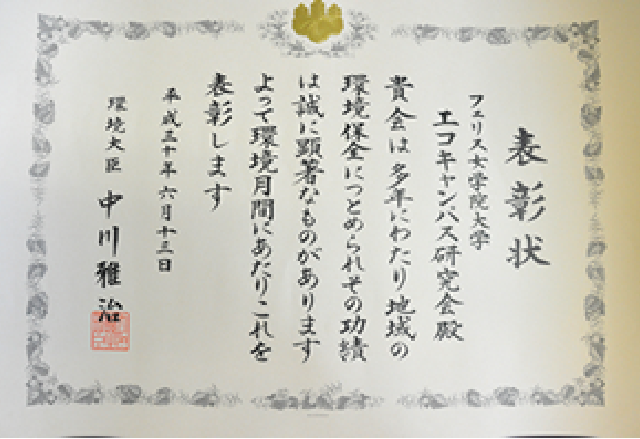 表彰状
フェリス女学院大学
エコキャンパス研究会殿
貴会は多年にわたり地域の
環境保全につとめられその功績
は誠に顕著なものがあります
よって環境月間にあたりこれを
表彰します
平成三十年六月十三日
環境大臣 中川雅治